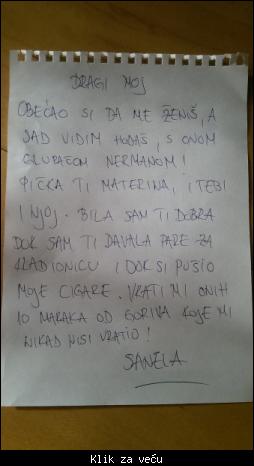 DRAGI MOJ
OBEĆAO SI DA ME ŽENIŠ, A
SAD VIDIM HODAŠ, S ONOM
GLUPAČOM NERMANOM!
PIČKA TI MATERINA, I TEBI
I NJOJ. BILA SAM TI DOBRA
DOK SAM TI DAVALA PARE ZA
KLADIONICU I DOK SI PUŠIO
MOJE CIGARE. VRATI MI ONIH
10 MARAKA OD GORIVA KOJE MI
NIKAD NISI VRATIO!
SANELA
Klik za veću